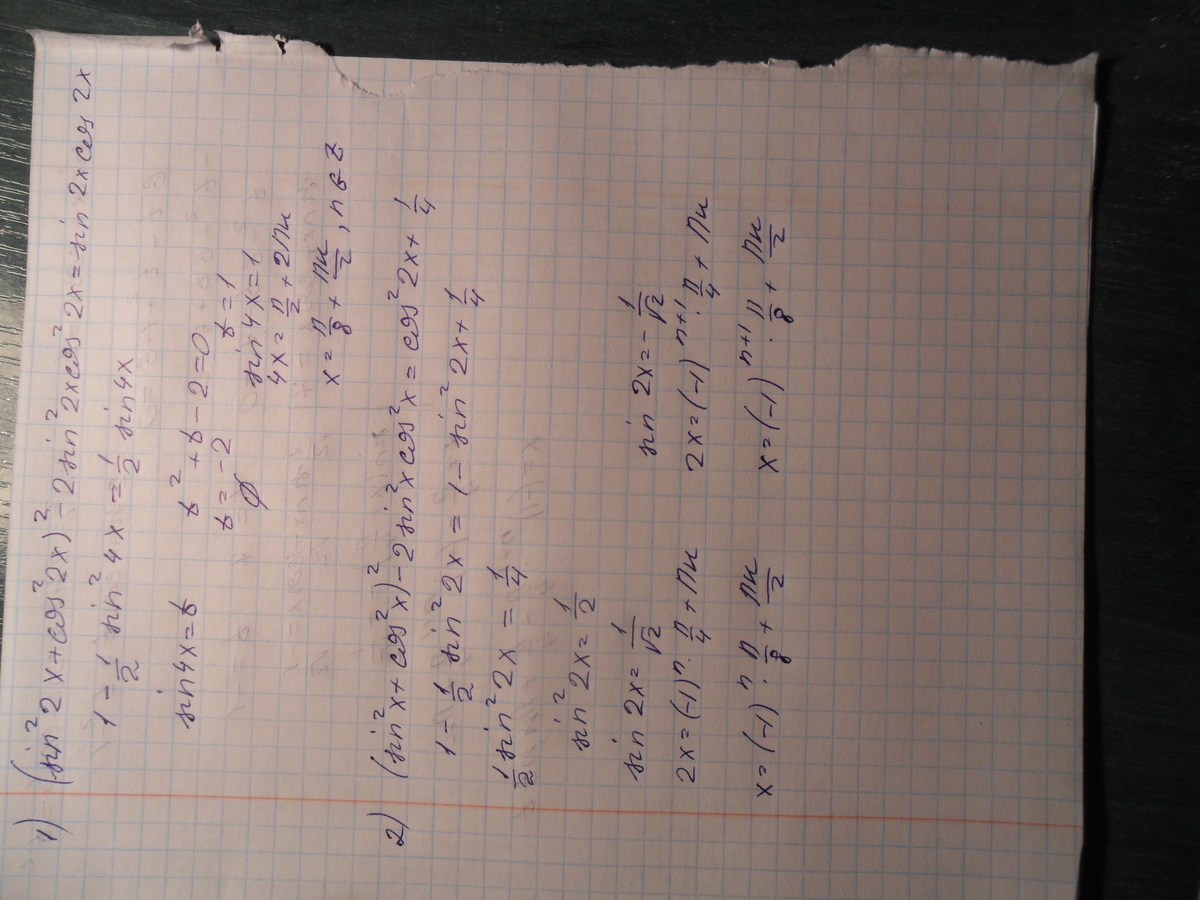 1) (sin² 2x + cos² 2x)² - 2 sin² 2x cos² 2x = sin 2x cos 2x
1 - 1/2 sin² 4x = 1/2 sin 4x
sin 4x = t
t² + t - 2 = 0
t = -2 t = 1
∅ sin 4x = 1
4x = π/2 + 2πn
x = π/8 + πn/2, n ∈ Z
2) (sin² x + cos² x)² - 2 sin² x cos² x = cos² 2x + 1/4
1 - 1/2 sin² 2x = 1 - sin² 2x + 1/4
1/2 sin² 2x = 1/4
sin² 2x = 1/2
sin 2x = 1/√2 sin 2x = - 1/√2
2x = (-1)ⁿ · π/4 + πn 2x = (-1)ⁿ⁺¹ · π/4 + πn
x = (-1)ⁿ · π/8 + πn/2 x = (-1)ⁿ⁺¹ · π/8 + πn/2